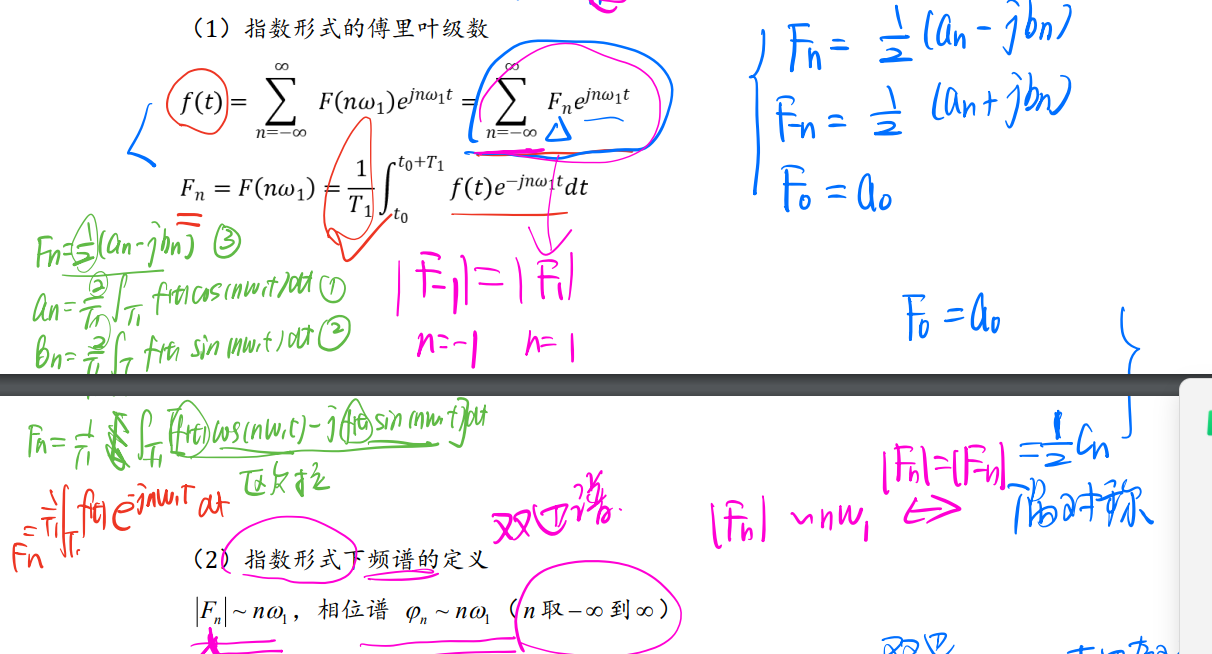 （1）指数形式的傅里叶级数
f(t) = ∑_{n=−∞}^{∞} F(nω₁)e^{jnω₁t} = ∑_{n=−∞}^{∞} Fₙe^{jnω₁t}
Fₙ = F(nω₁) = 1/T₁ ∫_{t₀}^{t₀+T₁} f(t)e^{−jnω₁t}dt
Fn = 1/2 (an − jbn)
F-n = 1/2 (an + jbn)
F₀ = a₀
Fn = 1/2 (an − jbn) ③
an = 2/T₁ ∫_{T₁} f(t)cos(nω₁t)dt ①
bn = 2/T₁ ∫_{T} f(t) sin(nω₁t)dt ②
|F-1| = |F1|
n=-1 n=1
F₀ = a₀
Fn = 1/T₁ ∫_{T₁} [f(t)cos(nω₁t) − jf(t)sin(nω₁t)]dt
= 1/T₁ ∫_{T₁} f(t) e^{-jnω₁t} dt
Fn
双边谱.
|Fn| ~ nω₁ <->
|Fn| = |F-n| = 1/2 Cn
偶对称
（2）指数形式下频谱的定义
|Fₙ| ~ nω₁，相位谱 φₙ ~ nω₁（n 取 −∞ 到 ∞）